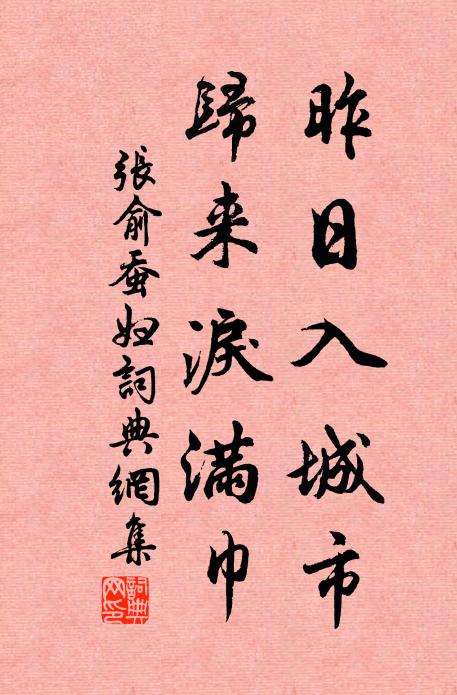 昨日入城市
歸来淚滿巾
張俞蚕妇詞典網集
詞典网印